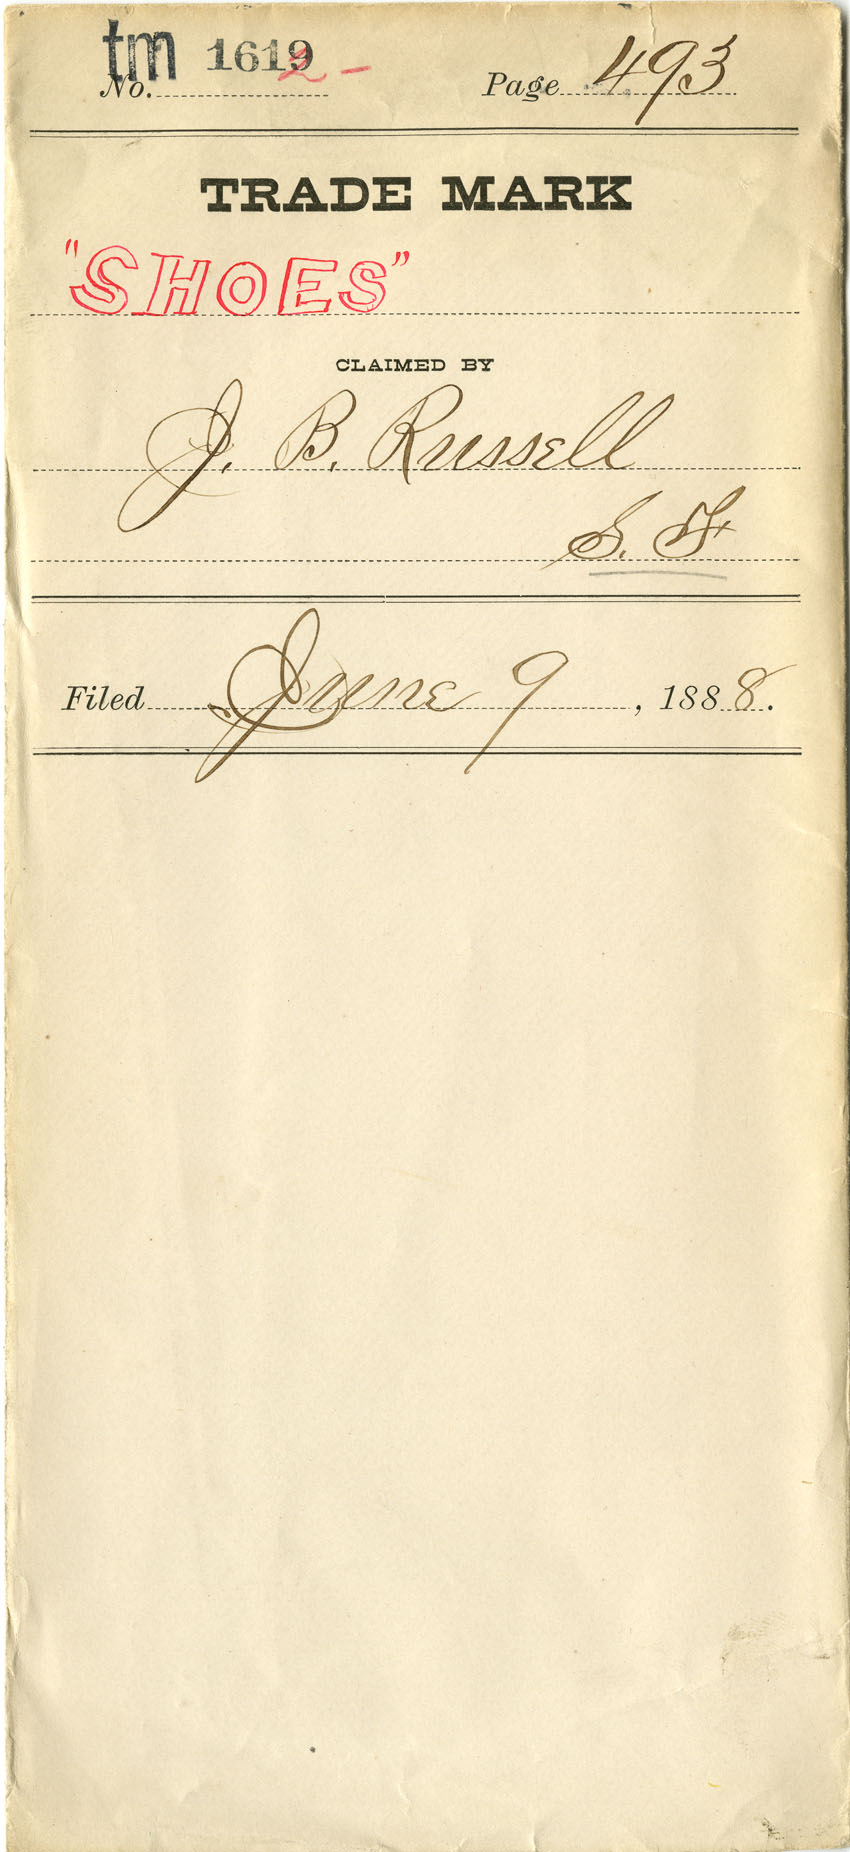 tm 1619 2 -
No. Page 493
TRADE MARK
"SHOES"
CLAIMED BY
J. B. Russell
S. F.
Filed June 9, 1888.